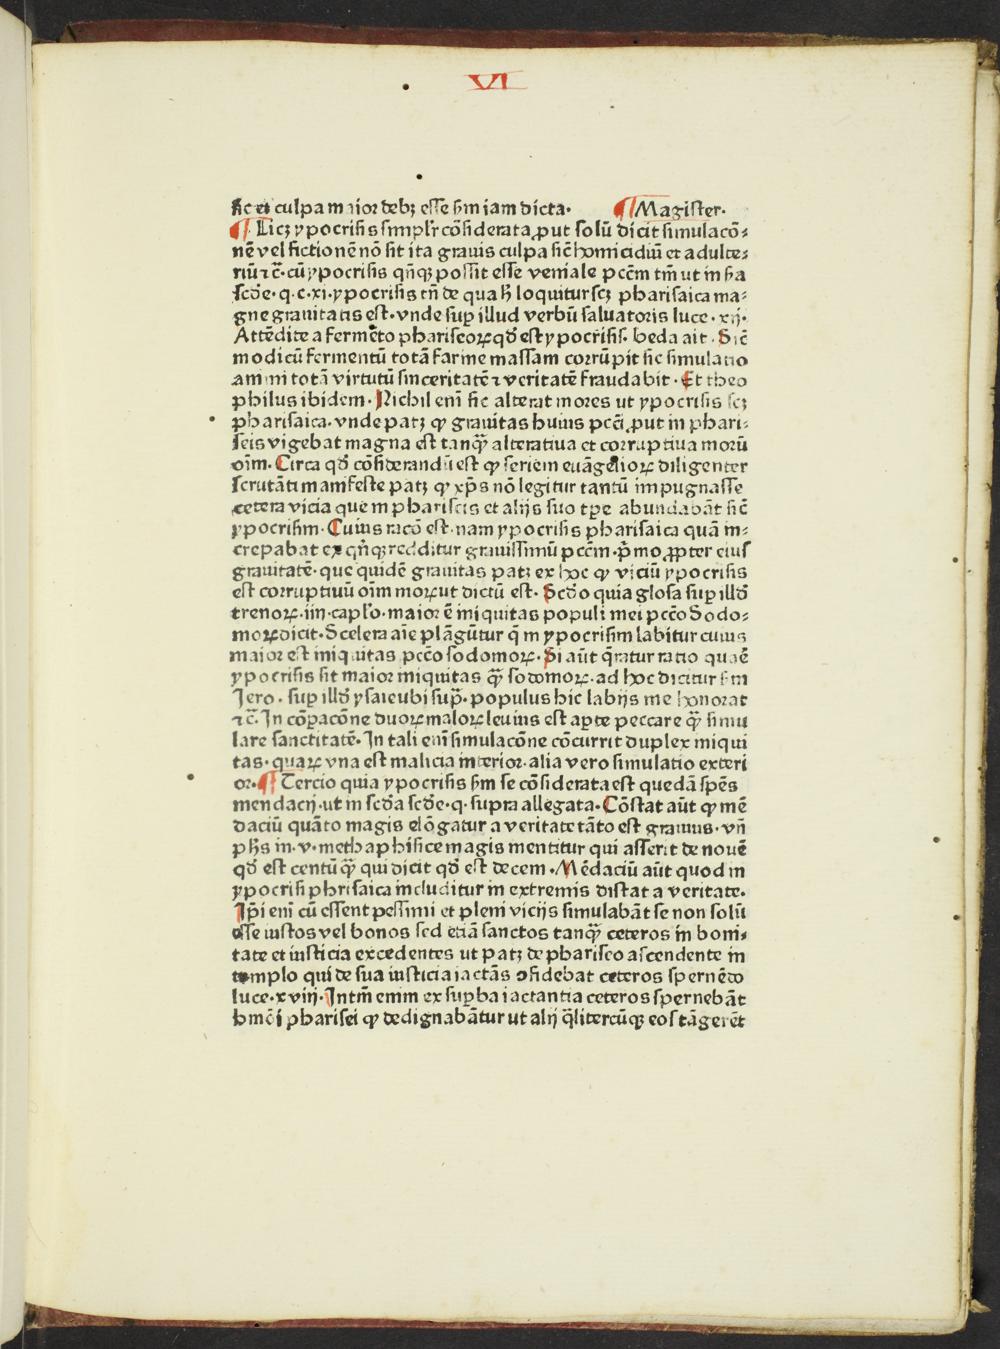 VI
sic et culpa maior debꝫ esse ẜm iam dicta· ¶ Magister·
¶ Licꝫ ypocrisis simplr̄ cōsiderata ꝓut solū dicit simulacō⸗
nē vel fictionē nō sit ita grauis culpa sic̄ homicidiū et adulte⸗
riū ⁊c̄· cū ypocrisis qn̄qꝫ possit esse veniale pccm̄ tm̄ ut in ẜa
scd̄e· q· c· xi· ypocrisis tn̄ de qua hͥ loquitur scꝫ pharisaica ma⸗
gne grauitatis est· vnde suꝑ illud verbū saluatoris luce· xij·
Attēdite a fermēto phariseoꝝ qd̄ est ypocrisis· beda ait· Sic̄
modicū fermentū totā farine massam corrūpit sic simulatio
animi totā virtutū sinceritatē ⁊ veritatē fraudabit· Et theo
philus ibidem· Nichil eni͂ sic alterat mores ut ypocrisis scꝫ
pharisaica· vnde patꝫ ꝙ grauitas huius pcc̄i ꝓut in phari⸗
seis vigebat magna est tanqͣꝫ alteratiua et corruptiua morū
oi͂m· Circa qd̄ cōsiderandū est ꝙ seriem euāgelioꝝ diligenter
scrutāti manifeste patꝫ ꝙ xp̄s nō legitur tantū impugnasse
cetera vicia que in phariseis et alijs suo tꝑe abundabāt sic̄
ypocrisim· Cuius racō est· nam ypocrisis pharisaica quā in⸗
crepabat ex qn̄qꝫ redditur grauissimū pccm̄· p̄mo ꝓpter eius
grauitatē· que quidē grauitas patꝫ ex hoc ꝙ viciū ypocrisis
est corruptiuū oi͂m moꝝ ut dictū est· Scd̄o quia glosa suꝑ illd̄
trenoꝝ· iiij· capl̓o· maior ē iniquitas populi mei pcc̄o Sodo⸗
moꝝ dicit· Scelera aīe plāgūtur q̄ in ypocrisim labitur cuius
maior est iniquitas pcc̄o sodomoꝝ· Si aūt q̄ratur ratio quaē
ypocrisis sit maior iniquitas qͣꝫ sodomoꝝ· ad hoc dicitur ẜm
Jero· suꝑ illd̄ ysaie ubi supͣ· populus hic labijs me honorat
⁊c̄· In cōpacōne duoꝝ maloꝝ leuius est aꝑte peccare qͣꝫ simu
lare sanctitatē· In tali eni͂ simulacōne cōcurrit duplex iniqui
tas· quaꝝ vna est malicia interior· alia vero simulatio exteri
or· ¶ Tercio quia ypocrisis ẜm se cōsiderata est quedā spēs
mendacij· ut in scd̄a scd̄e· q· supra allegata· Cōstat aūt ꝙ mē
daciū quāto magis elōgatur a veritate tāto est grauius· vn̄
ph̄s in· v· methaphisice magis mentitur qui asserit de nouē
qd̄ est centū qͣꝫ qui dicit qd̄ est decem· Mēdaciū aūt quod in
ypocrisi phrisaica includitur in extremis distat a veritate·
Ip̄i eni͂ cū essent pessimi et pleni vicijs simulabāt se non solū
esse iustos vel bonos sed etiā sanctos tanqͣꝫ ceteros in boni⸗
tate et iusticia excedentes ut patꝫ de phariseo ascendente in
templo qui de sua iusticia iactās ɔfidebat ceteros spernēdo
luce· xviij· Intm̄ enim ex suꝑbia iactantia ceteros spernebāt
hmōi pharisei ꝙ dedignabātur ut alij q̄litercūqꝫ eos tāgerēt